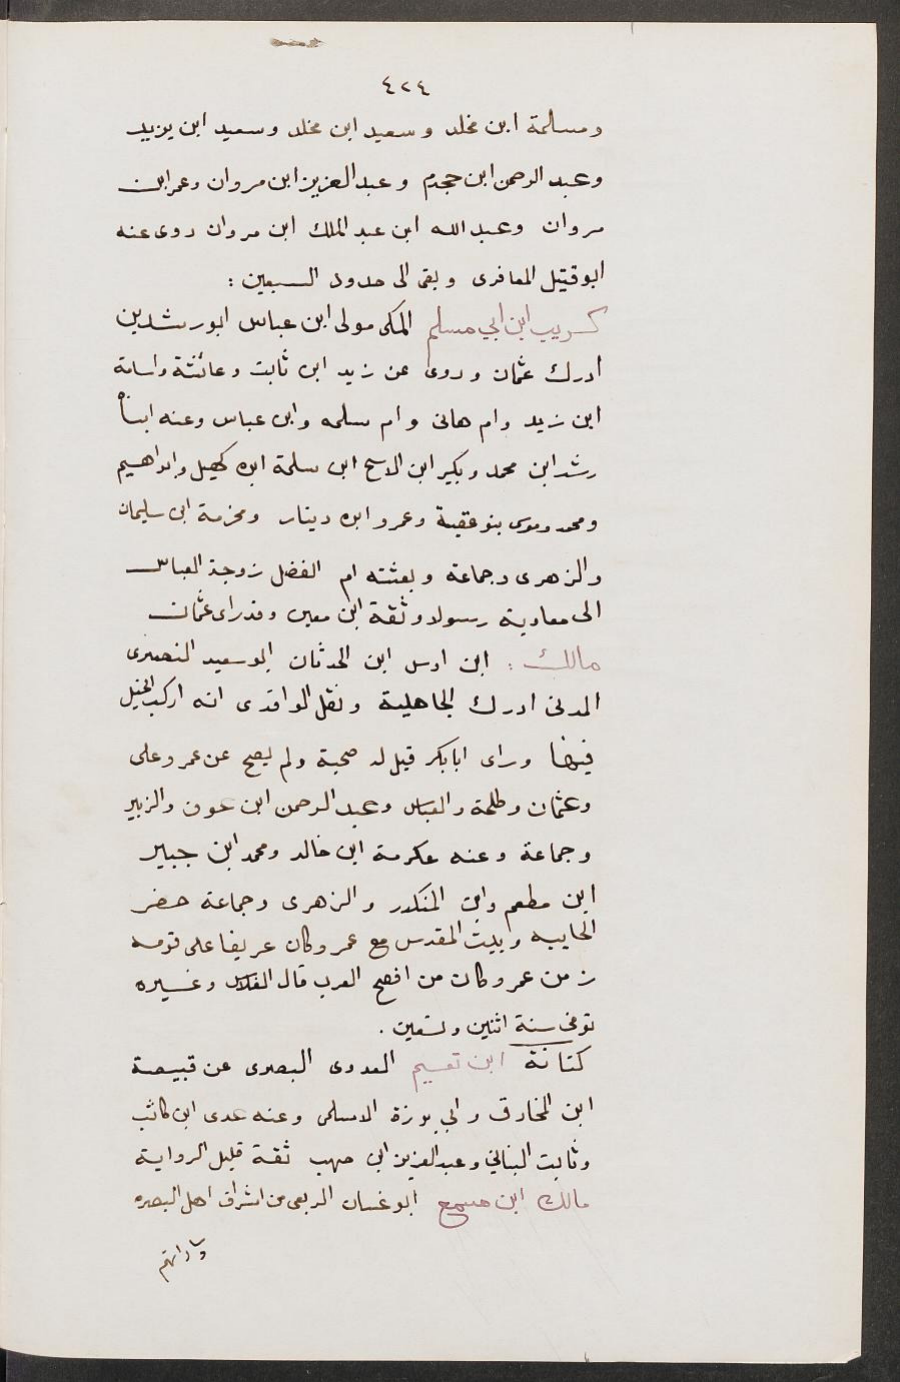 ٤٢٤
ومسلمة ابن مخلد وسعيد ابن مخلد وسعيد ابن يزيد
وعبد الرحمن ابن حجدم وعبد العزيز ابن مروان وعمر ابن
مروان وعبد الله ابن عبد الملك ابن مروان روى عنه
ابو قتيل المعافرى وبقى الى حدود السبعين :
كريب ابن ابي مسلم المكى مولى ابن عباس ابو رشدين
ادرك عثمان وروى عن زيد ابن ثابت وعائشة واسامة
ابن زيد وام هانى وام سلمه وابن عباس وعنه ابناه
رشد ابن محمد وبكير ابن الاسج ابن سلمة ابن كهيل وابراهيم
ومحمد وموسى بنو عقبة وعمرو ابن دينار ومخرمة ابن سليمان
والزهرى وجماعة وبعثته ام الفضل زوجة العباس
الى معاوية رسولا وثقة ابن معين وقد راى عثمان
مالك : ابن اوس ابن الحدثان ابو سعيد النصرى
المدنى ادرك الجاهلية ونقل الواقدى انه اركب الخيل
فيها وراى ابا بكر قيل له صحبة ولم يصح عن عمر وعلى
وعثمان وطلحة والعباس وعبد الرحمن ابن عوف والزبير
وجماعة وعنه عكرمة ابن خالد ومحمد ابن جبير
ابن مطعم وابن المنكدر والزهرى وجماعة حضر
الجابيه وبيت المقدس مع عمر وكان عريفا على قومه
زمن عمر وكان من افصح العرب قال الفلاس وغيره
توفى سنة اثنين وتسعين .
كنانة ابن نعيم العدوى البصرى عن قبيصة
ابن المخارق وابي برزة الاسلمى وعنه عدى ابن ثابت
وثابت البناني وعبد العزيز ابن صهيب ثقة قليل الرواية
مالك ابن مسمع ابو غسان الربعى من اشراف اهل البصره
وساداتهم